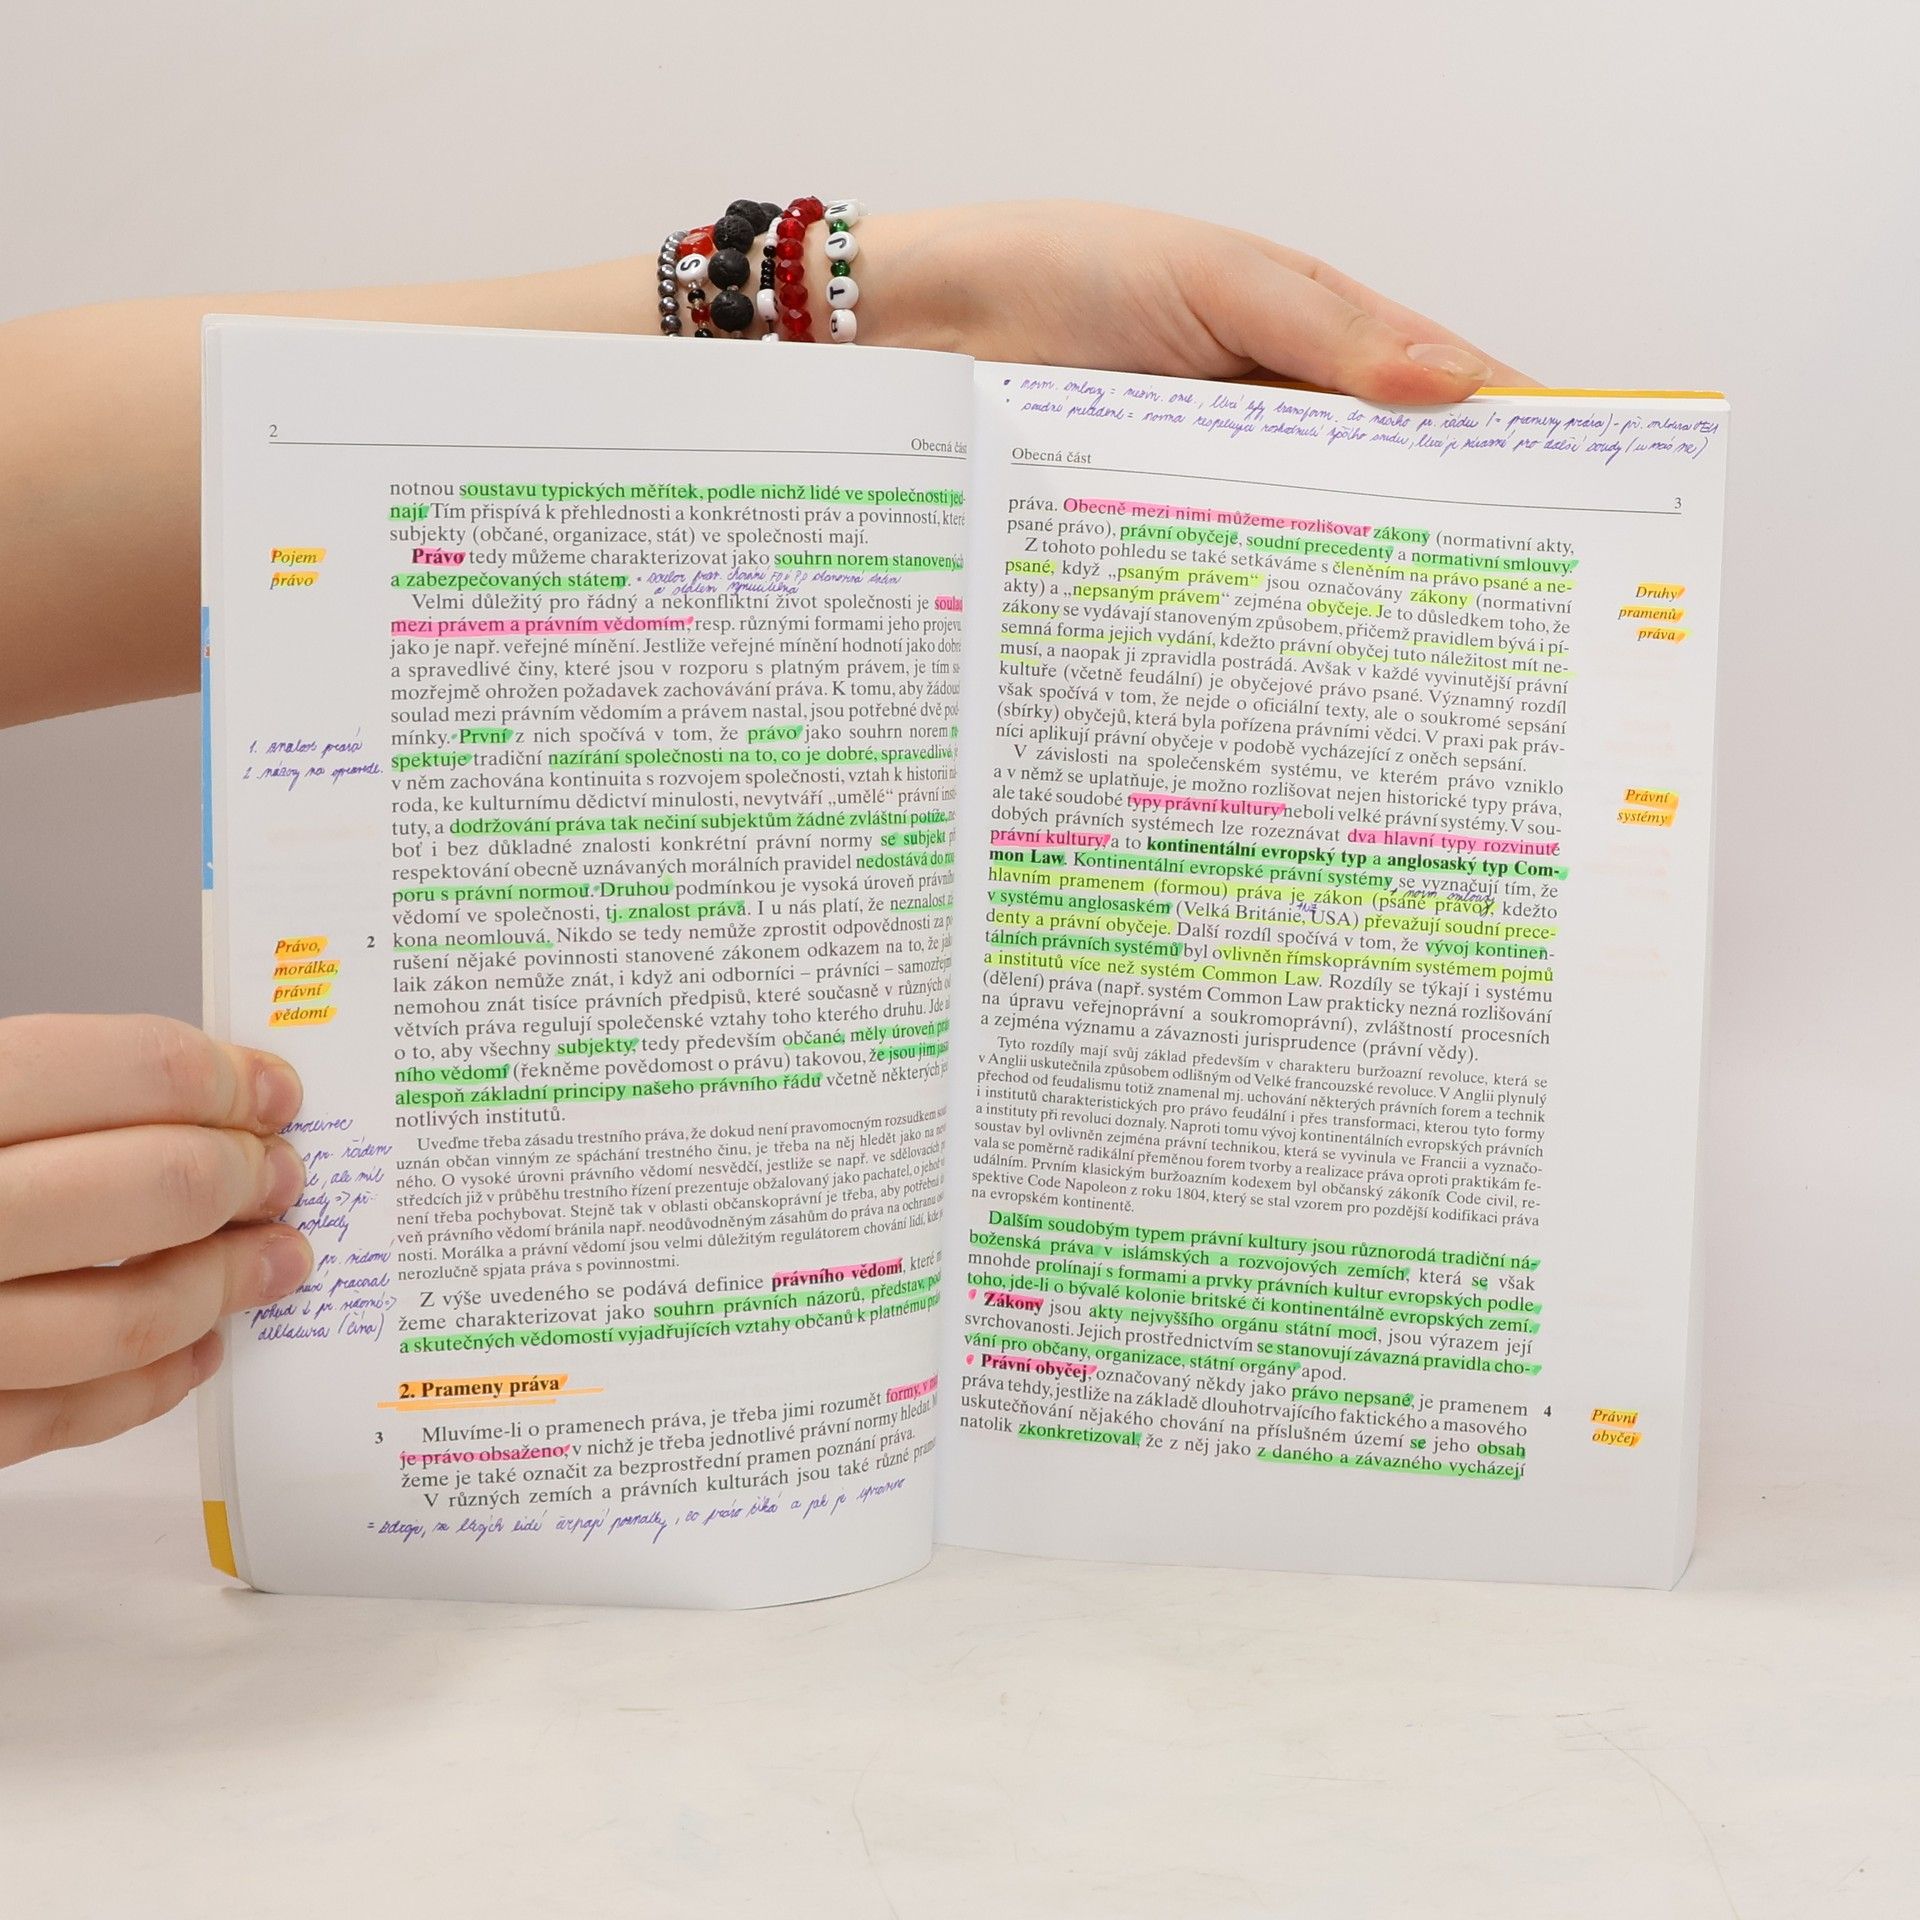 S
M
J
T
2
Obecná část
notnou soustavu typických měřítek, podle nichž lidé ve společnosti jed-
nají. Tím přispívá k přehlednosti a konkrétnosti práv a povinností, které
subjekty (občané, organizace, stát) ve společnosti mají.
Pojem
právo
Právo tedy můžeme charakterizovat jako souhrn norem stanovených
a zabezpečovaných státem.
Velmi důležitý pro řádný a nekonfliktní život společnosti je soulad
mezi právem a právním vědomím, resp. různými formami jeho projevu
jako je např. veřejné mínění. Jestliže veřejné mínění hodnotí jako dobré
a spravedlivé činy, které jsou v rozporu s platným právem, je tím sa-
mozřejmě ohrožen požadavek zachovávání práva. K tomu, aby žádoucí
soulad mezi právním vědomím a právem nastal, jsou potřebné dvě pod-
mínky. První z nich spočívá v tom, že právo jako souhrn norem re-
spektuje tradiční nazírání společnosti na to, co je dobré, spravedlivé, je
v něm zachována kontinuita s rozvojem společnosti, vztah k historii ná-
roda, ke kulturnímu dědictví minulosti, nevytváří „umělé“ právní insti-
tuty, a dodržování práva tak nečiní subjektům žádné zvláštní potíže, ne-
boť i bez důkladné znalosti konkrétní právní normy se subjekt při
respektování obecně uznávaných morálních pravidel nedostává do roz-
poru s právní normou. Druhou podmínkou je vysoká úroveň právního
vědomí ve společnosti, tj. znalost práva. I u nás platí, že neznalost zá-
Právo,
morálka,
právní
vědomí
2
kona neomlouvá. Nikdo se tedy nemůže zprostit odpovědnosti za po-
rušení nějaké povinnosti stanovené zákonem odkazem na to, že jako
laik zákon nemůže znát, i když ani odborníci – právníci – samozřejmě
nemohou znát tisíce právních předpisů, které současně v různých od-
větvích práva regulují společenské vztahy toho kterého druhu. Jde ale
o to, aby všechny subjekty, tedy především občané, měly úroveň práv-
ního vědomí (řekněme povědomost o právu) takovou, že jsou jim jasné
alespoň základní principy našeho právního řádu včetně některých jed-
notlivých institutů.
Uveďme třeba zásadu trestního práva, že dokud není pravomocným rozsudkem
uznán občan vinným ze spáchání trestného činu, je třeba na něj hledět jako na nevin-
ného. O vysoké úrovni právního vědomí nesvědčí, jestliže se např. ve sdělovacích pro-
středcích již v průběhu trestního řízení prezentuje obžalovaný jako pachatel, o jehož
není třeba pochybovat. Stejně tak v oblasti občanskoprávní je třeba, aby potřebná úro-
veň právního vědomí bránila např. neodůvodněným zásahům do práva na ochranu osob-
nosti. Morálka a právní vědomí jsou velmi důležitým regulátorem chování lidí, kde
nerozlučně spjata práva s povinnostmi.
Z výše uvedeného se podává definice právního vědomí, které
žeme charakterizovat jako souhrn právních názorů, představ,
a skutečných vědomostí vyjadřujících vztahy občanů k platnému
2. Prameny práva
3
Mluvíme-li o pramenech práva, je třeba jimi rozumět formy, v
je právo obsaženo, v nichž je třeba jednotlivé právní normy hledat.
žeme je také označit za bezprostřední pramen poznání práva.
V různých zemích a právních kulturách jsou také různé
Obecná část
3
práva. Obecně mezi nimi můžeme rozlišovat zákony (normativní akty,
psané právo), právní obyčeje, soudní precedenty a normativní smlouvy.
Z tohoto pohledu se také setkáváme s členěním na právo psané a ne-
psané, když „psaným právem“ jsou označovány zákony (normativní
akty) a „nepsaným právem“ zejména obyčeje. Je to důsledkem toho, že
zákony se vydávají stanoveným způsobem, přičemž pravidlem bývá i pí-
semná forma jejich vydání, kdežto právní obyčej tuto náležitost mít ne-
musí, a naopak ji zpravidla postrádá. Avšak v každé vyvinutější právní
kultuře (včetně feudální) je obyčejové právo psané. Významný rozdíl
však spočívá v tom, že nejde o oficiální texty, ale o soukromé sepsání
(sbírky) obyčejů, která byla pořízena právními vědci. V praxi pak práv-
níci aplikují právní obyčeje v podobě vycházející z oněch sepsání.
Druhy
pramenů
práva
V závislosti na společenském systému, ve kterém právo vzniklo
a v němž se uplatňuje, je možno rozlišovat nejen historické typy práva,
ale také soudobé typy právní kultury neboli velké právní systémy. V sou-
dobých právních systémech lze rozeznávat dva hlavní typy rozvinuté
právní kultury, a to kontinentální evropský typ a anglosaský typ Com-
mon Law. Kontinentální evropské právní systémy se vyznačují tím, že
hlavním pramenem (formou) práva je zákon (psané právo), kdežto
v systému anglosaském (Velká Británie, USA) převažují soudní prece-
denty a právní obyčeje. Další rozdíl spočívá v tom, že vývoj kontinen-
tálních právních systémů byl ovlivněn římskoprávním systémem pojmů
a institutů více než systém Common Law. Rozdíly se týkají i systému
(dělení) práva (např. systém Common Law prakticky nezná rozlišování
na úpravu veřejnoprávní a soukromoprávní), zvláštností procesních
a zejména významu a závaznosti jurisprudence (právní vědy).
Právní
systémy
Tyto rozdíly mají svůj základ především v charakteru buržoazní revoluce, která se
v Anglii uskutečnila způsobem odlišným od Velké francouzské revoluce. V Anglii plynulý
přechod od feudalismu totiž znamenal mj. uchování některých právních forem a technik
i institutů charakteristických pro právo feudální i přes transformaci, kterou tyto formy
a instituty při revoluci doznaly. Naproti tomu vývoj kontinentálních evropských právních
soustav byl ovlivněn zejména právní technikou, která se vyvinula ve Francii a vyznačo-
vala se poměrně radikální přeměnou forem tvorby a realizace práva oproti praktikám fe-
událním. Prvním klasickým buržoazním kodexem byl občanský zákoník Code civil, re-
spektive Code Napoleon z roku 1804, který se stal vzorem pro pozdější kodifikaci práva
na evropském kontinentě.
Dalším soudobým typem právní kultury jsou různorodá tradiční ná-
boženská práva v islámských a rozvojových zemích, která se však
mnohde prolínají s formami a prvky právních kultur evropských podle
toho, jde-li o bývalé kolonie britské či kontinentálně evropských zemí.
Zákony jsou akty nejvyššího orgánu státní moci, jsou výrazem její
svrchovanosti. Jejich prostřednictvím se stanovují závazná pravidla cho-
vání pro občany, organizace, státní orgány apod.
Právní obyčej, označovaný někdy jako právo nepsané, je pramenem
práva tehdy, jestliže na základě dlouhotrvajícího faktického a masového
uskutečňování nějakého chování na příslušném území se jeho obsah
natolik zkonkretizoval, že z něj jako z daného a závazného vycházejí
4
Právní
obyčej